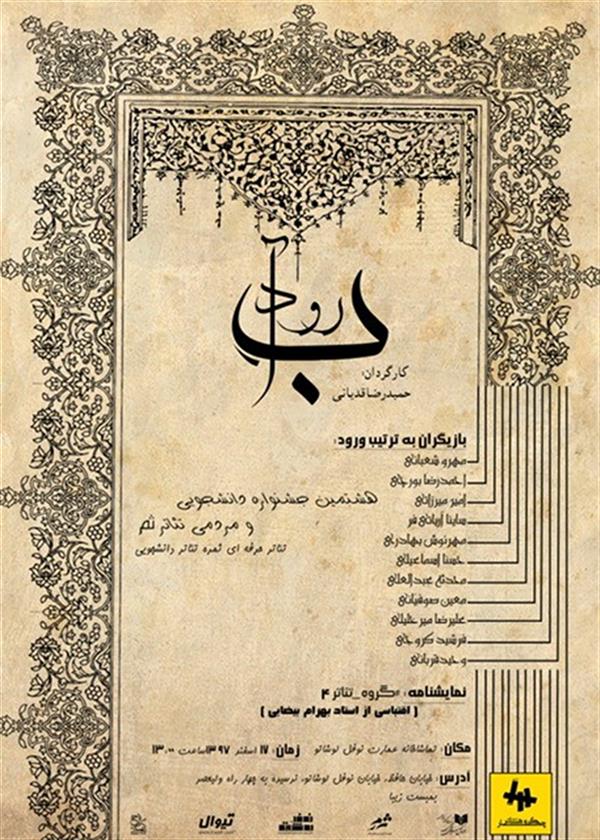 آب
رود
کارگردان:
حمیدرضا قدبانی
بازیگران به ترتیب ورود:
مهرو شعبانی
احمدرضا پورجی
امیر میرزائی
ساینا آریائی فر
مهرنوش بهادری
حسنا اسماعیلی
محدثه عبدالعلی
معین صوفیانی
علیرضا میرخلیلی
فرشید کروجی
وحید قربانی
هشتمین جشنواره دانشجویی
و مردمی تئاتر ثمر
تئاتر حرفه ای ثمره تئاتر دانشجویی
نمایشنامه: #گروه_تئاتر ۴
( اقتباسی از استاد بهرام بیضایی )
مکان: تماشاخانه عمارت نوفل لوشاتو زمان: ۱۷ اسفند ۱۳۹۷ ساعت ۱۳:۰۰
آدرس: خیابان حافظ، خیابان نوفل لوشاتو، نرسیده به چهار راه ولیعصر
بمبست زیبا
تیوال
شهر